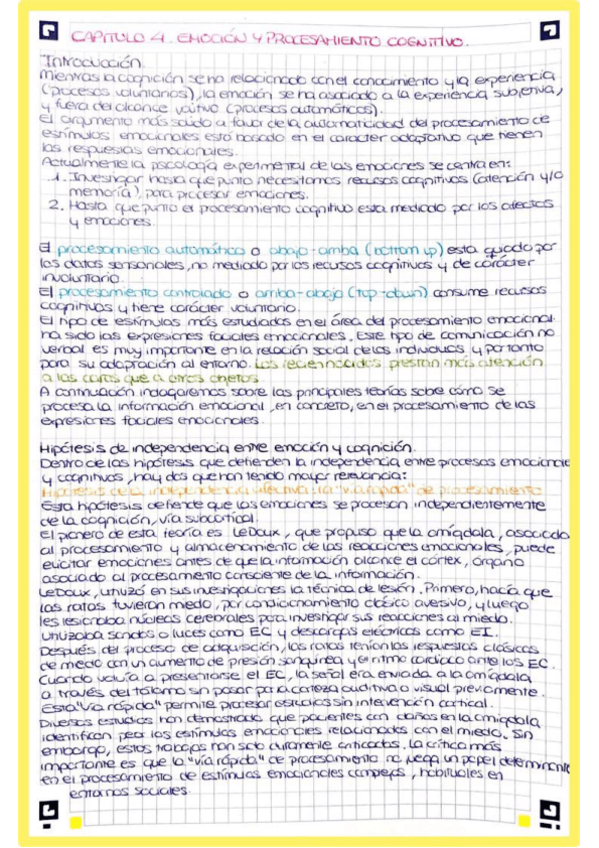 CAPÍTULO 4. EMOCIÓN Y PROCESAMIENTO COGNITIVO.
Introducción.
Mientras la cognición se ha relacionado con el conocimiento y la experiencia
(procesos voluntarios), la emoción se ha asociado a la experiencia subjetiva,
y fuera del alcance volitivo (procesos automáticos).
El argumento más sólido a favor de la automaticidad del procesamiento de
estímulos emocionales está basado en el carácter adaptativo que tienen
las respuestas emocionales.
Actualmente la psicología experimental de las emociones se centra en:
1. Investigar hasta que punto necesitamos recursos cognitivos (atención y/o
memoria), para procesar emociones.
2. Hasta que punto el procesamiento cognitivo esta mediado por los afectos
y emociones.
El procesamiento automático o abajo-arriba (bottom up) esta guiado por
los datos sensoriales, no mediado por los recursos cognitivos y de carácter
involuntario.
El procesamiento controlado o arriba-abajo (top-down) consume recursos
cognitivos y tiene carácter voluntario.
El tipo de estímulos más estudiados en el área del procesamiento emocional
ha sido las expresiones faciales emocionales. Este tipo de comunicación no
verbal es muy importante en la relación social de los individuos y por tanto
para su adaptación al entorno. Los recien nacidos prestan más atención
a las caras que a otros objetos.
A continuación indagaremos sobre las principales teorías sobre cómo se
procesa la información emocional, en concreto, en el procesamiento de las
expresiones faciales emocionales.
Hipótesis de independencia entre emoción y cognición.
Dentro de las hipótesis que defienden la independencia entre procesos emocionales
y cognitivos, hay dos que han tenido mayor relevancia:
Hipótesis de la independencia afectiva: la "vía rápida" de procesamiento
Esta hipótesis defiende que las emociones se procesan independientemente
de la cognición, vía subcortical.
El pionero de esta teoría es LeDoux, que propuso que la amígdala, asociada
al procesamiento y almacenamiento de las reacciones emocionales, puede
elicitar emociones antes de que la información alcance el córtex, órgano
asociado al procesamiento consciente de la información.
LeDoux, utilizó en sus investigaciones la técnica de lesión. Primero, hacía que
las ratas tuvieran miedo, por condicionamiento clásico aversivo, y luego
les lesionaba núcleos cerebrales para investigar sus reacciones al miedo.
Utilizaba sonidos o luces como EC y descargas eléctricas como EI.
Después del proceso de adquisición, las ratas tenían las respuestas clásicas
de miedo con un aumento de presión sanguínea y el ritmo cardíaco ante los EC.
Cuando volvía a presentarse el EC, la señal era enviada a la amígdala
a través del tálamo sin pasar por la corteza auditiva o visual previamente.
Esta "vía rápida" permite procesar estímulos sin intervención cortical.
Diversos estudios han demostrado que pacientes con daños en la amígdala
identifican peor los estímulos emocionales relacionados con el miedo. Sin
embargo, estos trabajos han sido duramente criticados. La crítica más
importante es que la "vía rápida" de procesamiento no juega un papel determinante
en el procesamiento de estímulos emocionales complejos, habituales en
entornos sociales.